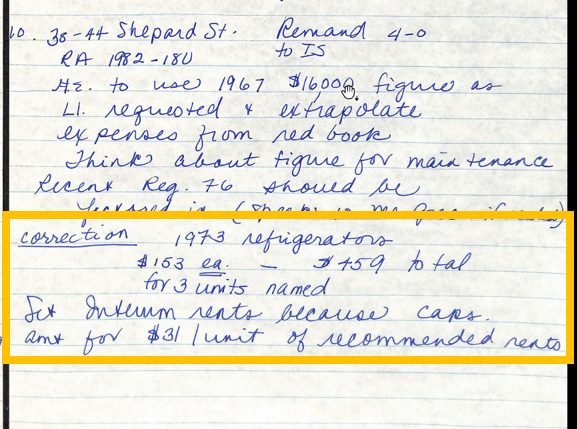 10. 38-44 Shepard St. Remand 4-0
RA 1982-18U to IS
H.E. to use 1967 $16000 figure as
Ll. requested & extrapolate
expenses from red book
Think about figure for maintenance
Recent Reg. 76 should be
in (
correction 1973 refrigerators
$153 ea. — $459 total
for 3 units named
Set Interim rents because caps.
amt for $31/unit of recommended rents